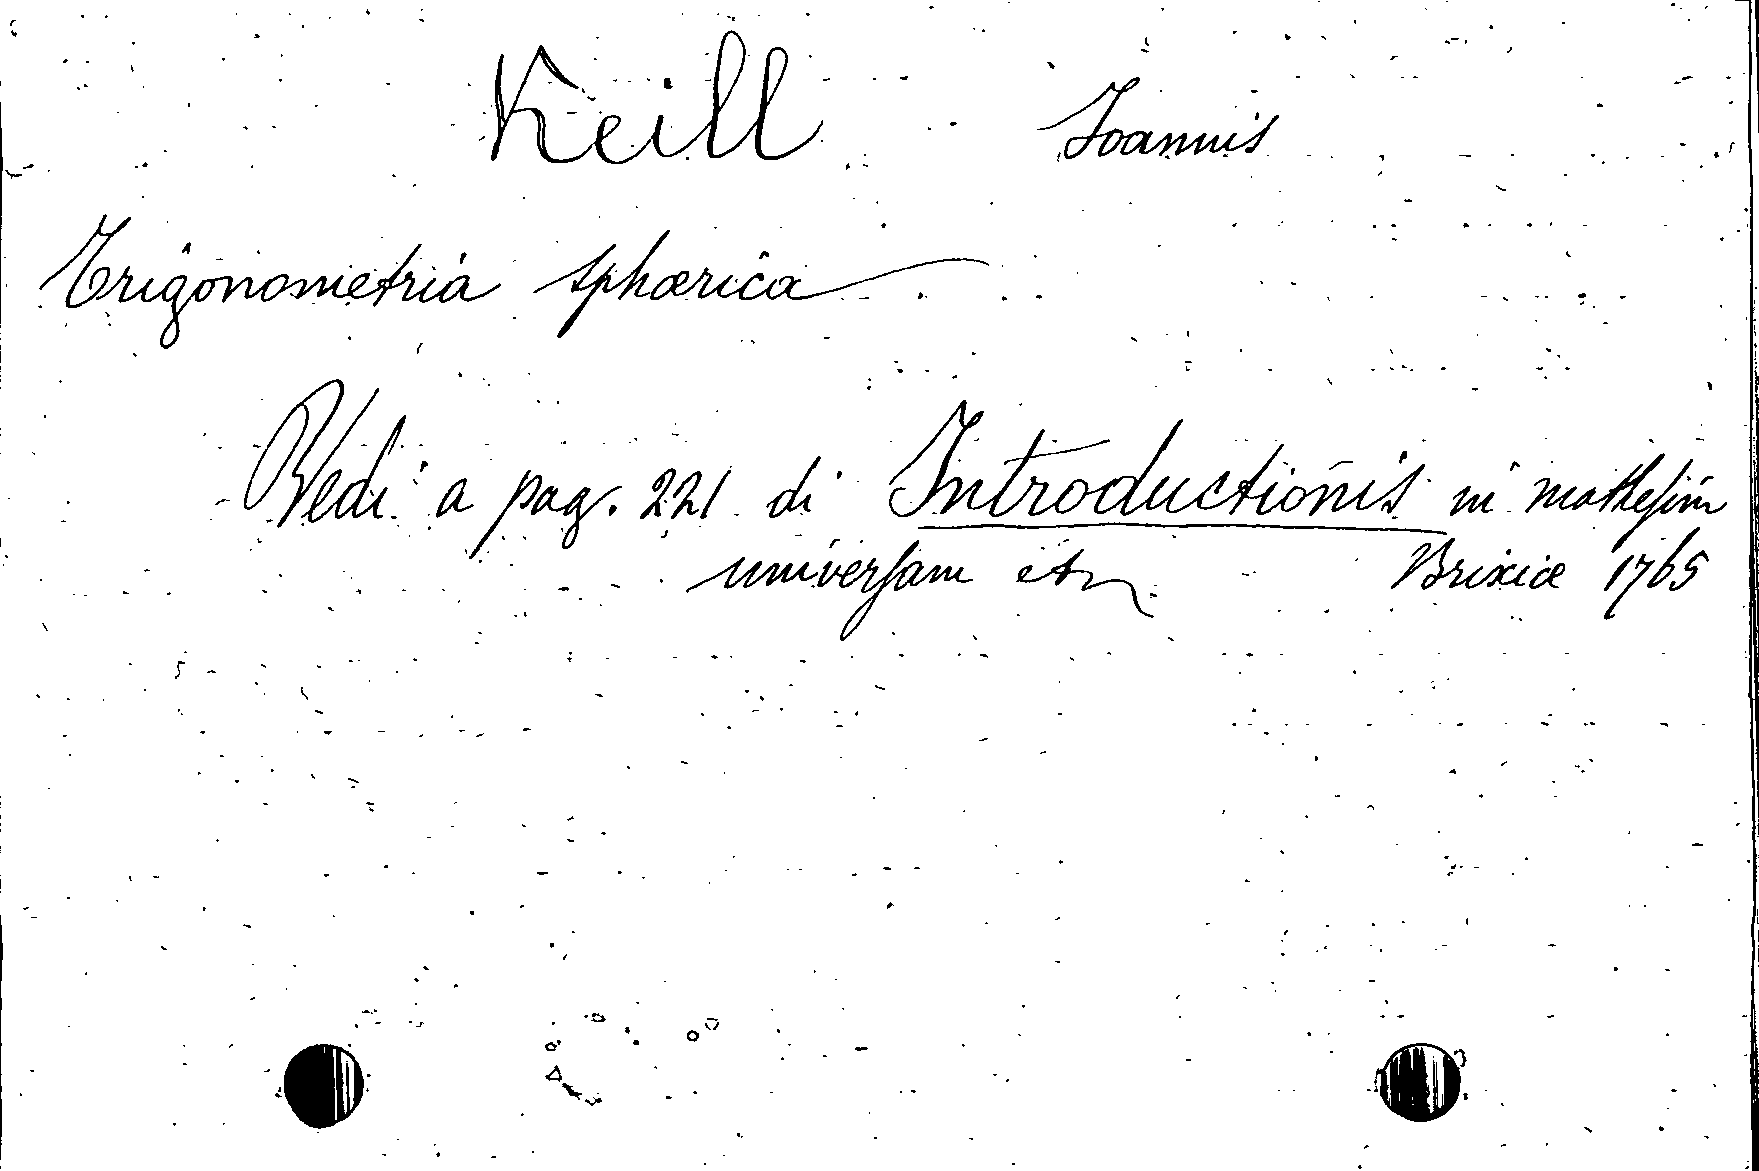 Keill Joannis
Trigonometria sphærica
Vedi a pag. 221 di Introductionis in mathesim
universam etc
Brixiæ 1765